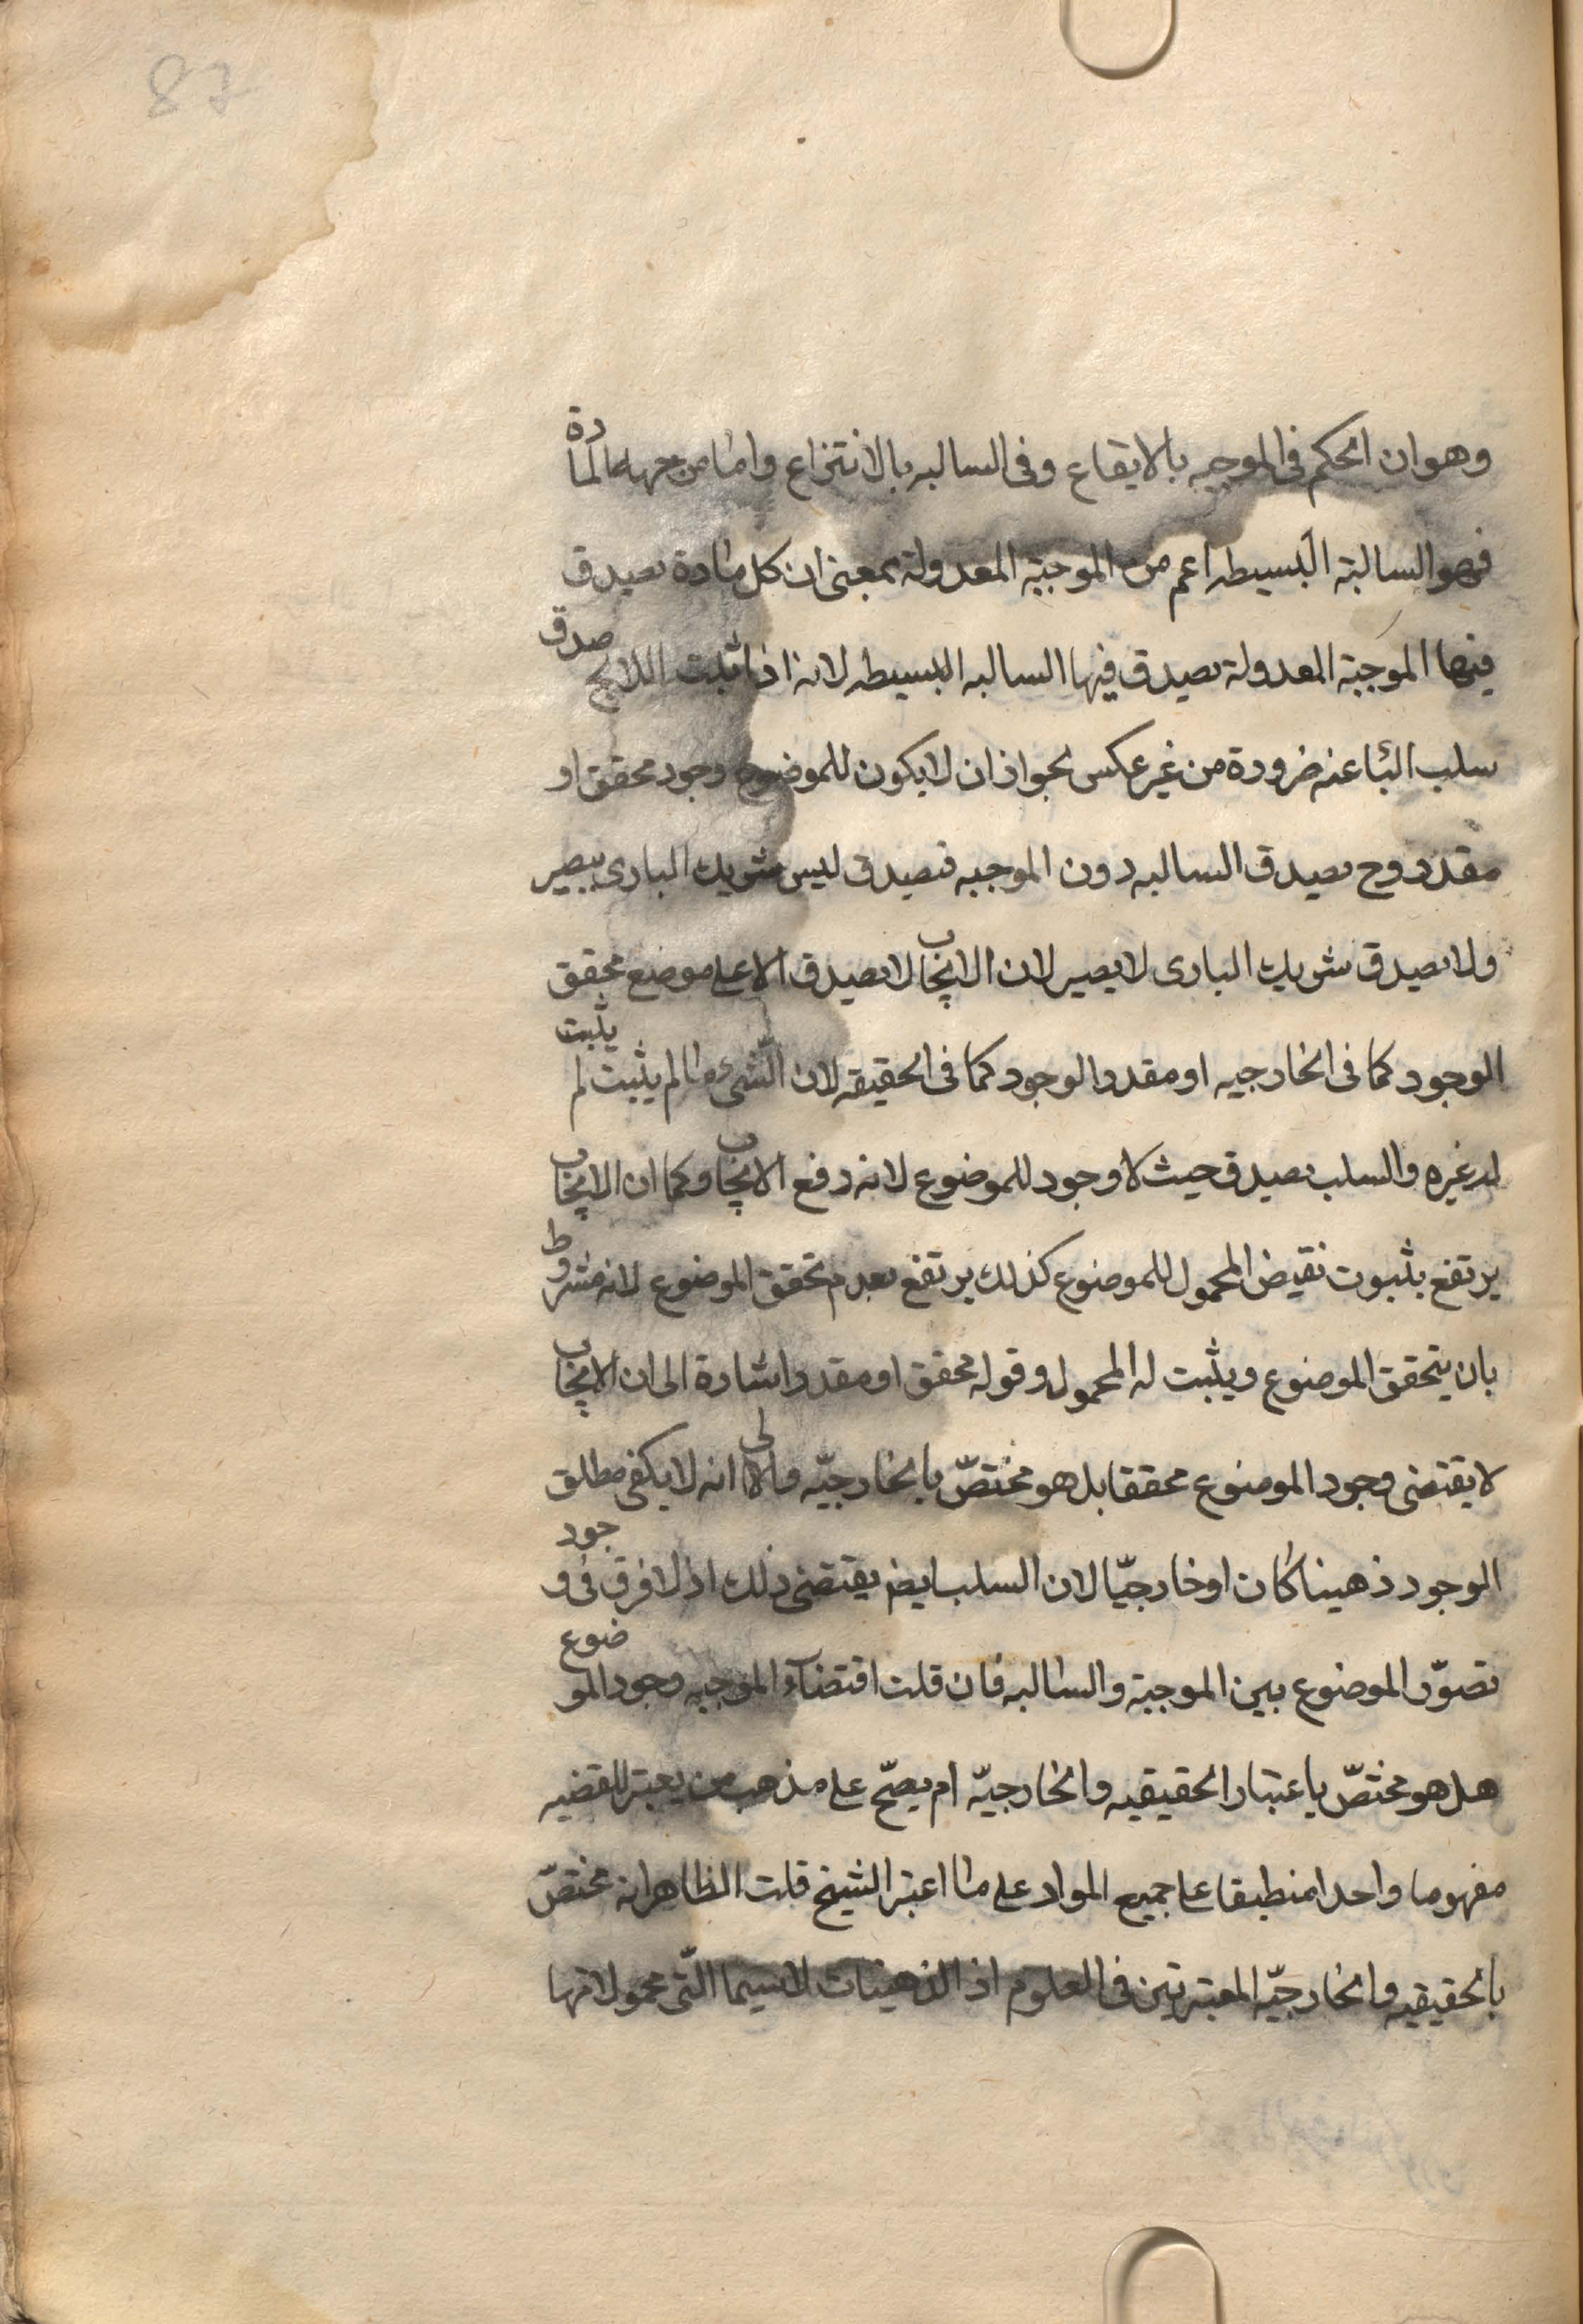 87
وهو ان الحكم فى الموجبه بالايقاع وفى السالبه بالانتزاع واما من جهه المادة
فهو السالبة البسيطه اعم من الموجبة المعدولة بمعنى ان كل مادة تصدق
فيها الموجبة المعدولة تصدق فيها السالبه البسيطه لانه اذا ثبت اللابج صدق
سلب البا عنه ضرورة من غير عكس لجواز ان لا يكون للموضوع وجود محقق او
مقدر وح تصدق السالبه دون الموجبه فتصدق ليس شريك البارى ببصير
ولا تصدق شريك البارى لا بصير لان الايجاب لا يصدق الا على موضع محقق
الوجود كما فى الخارجيه او مقدر الوجود كما فى الحقيقه لان الشىء ما لم يثبت لم يثبت
له غيره والسلب تصدق حيث لا وجود للموضوع لانه رفع الايجاب وكما ان الايجاب
يرتفع بثبوت نقيض المحمول للموضوع كذلك يرتفع بعدم تحقق الموضوع لانه مشروط
بان يتحقق الموضوع ويثبت له المحمول وقوله محقق او مقدر اشارة الى ان الايجاب
لا يقتضى وجود الموضوع محققا بل هو مختصّ بالخارجيّه والى انه لا يكفى مطلق
الوجود ذهينا كان او خارجيّا لان السلب ايض يقتضى ذلك اذ لا فرق فى وجود
تصوّر الموضوع بين الموجبة والسالبه فان قلت اقتضآء الموجبه وجود الموضوع
هل هو مختصّ باعتبار الحقيقيه والخارجيّه ام يصحّ على مذهب من يعتبر للقضيه
مفهوما واحدا منطبقا على جميع المواد على ما اعتبر الشيخ قلت الظاهر انه مختصّ
بالحقيقيه والخارجيّه المعتبرتين فى العلوم اذ الذهنيات لا سيما الّتى محمولاتها